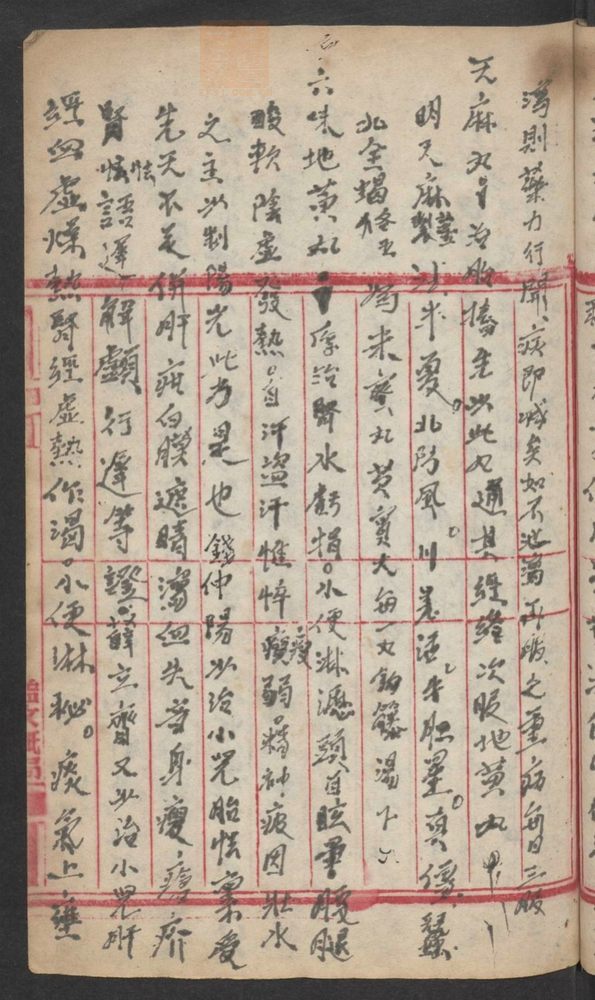 瀉則藥力行開、疾即減矣如不泄瀉再服之重病每日三服
天麻丸 治胎搐先以此丸通其經絡次服地黃丸
明天麻製 半夏。北防風。川羌活、牛胆星。真僵蚕、
北全蝎 為末蜜丸芡實大每一丸鈎藤湯下
六味地黃丸 治腎水虧損。小便淋瀝頭目眩暈腰腿
酸軟陰虛發熱。自汗盜汗憔悴瘦弱。精神疲困壯水
之主以制陽光此方是也 錢仲陽以治小兒胎怯稟受
先天不足併肝疳白膜遮睛瀉血失音身瘦瘡疥
腎怯語遲解顱行遲等證。薛立齋又以治小兒肝
經血虛燥熱腎經虛熱作渴。小便淋秘。痰氣上壅